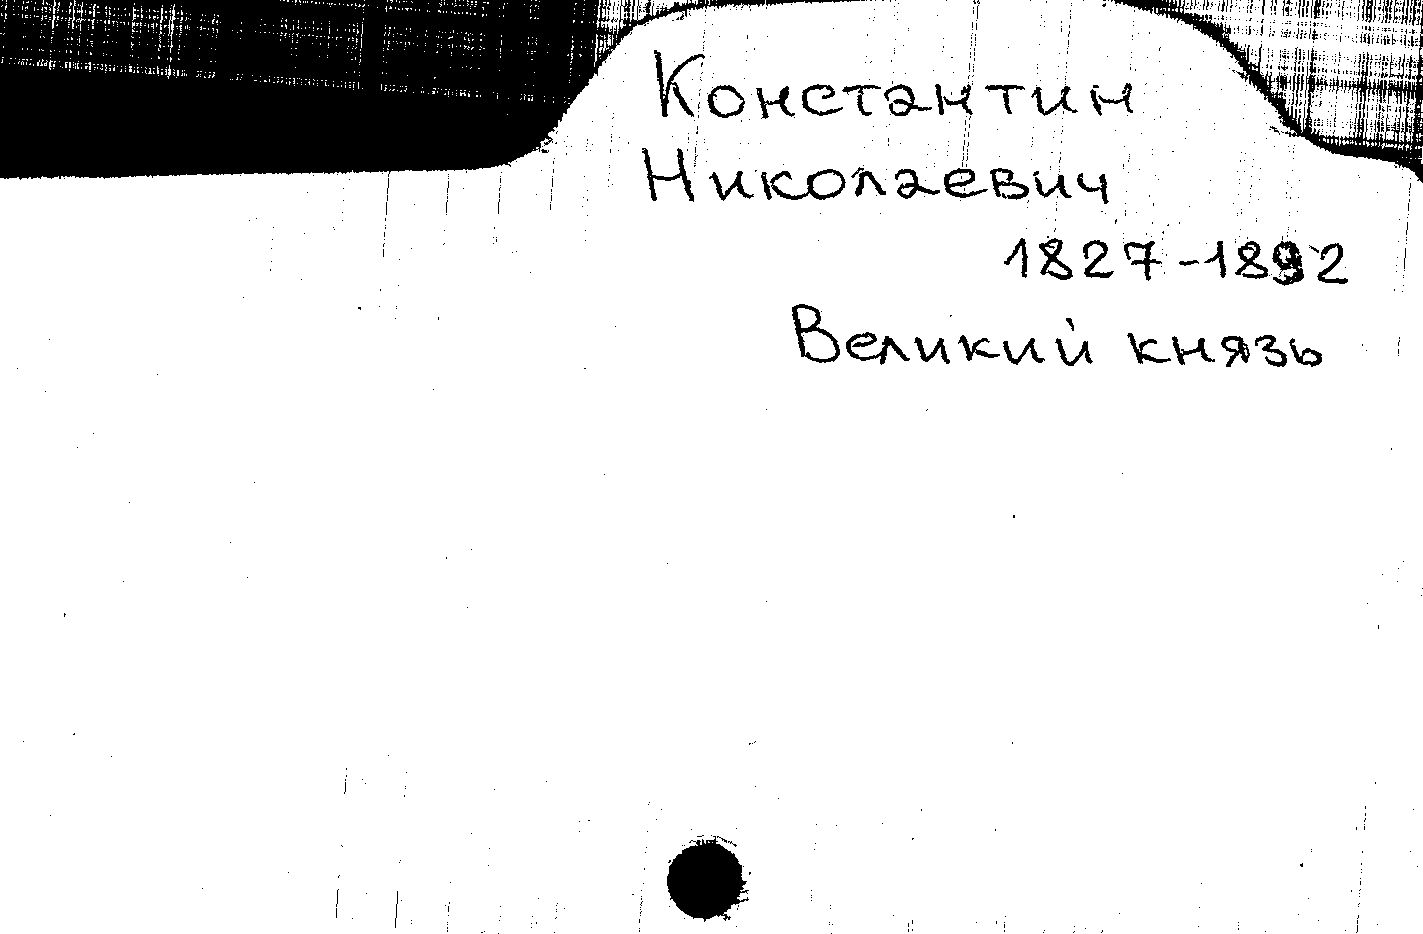 Константин
Николаевич
1827-1892
Великий князь